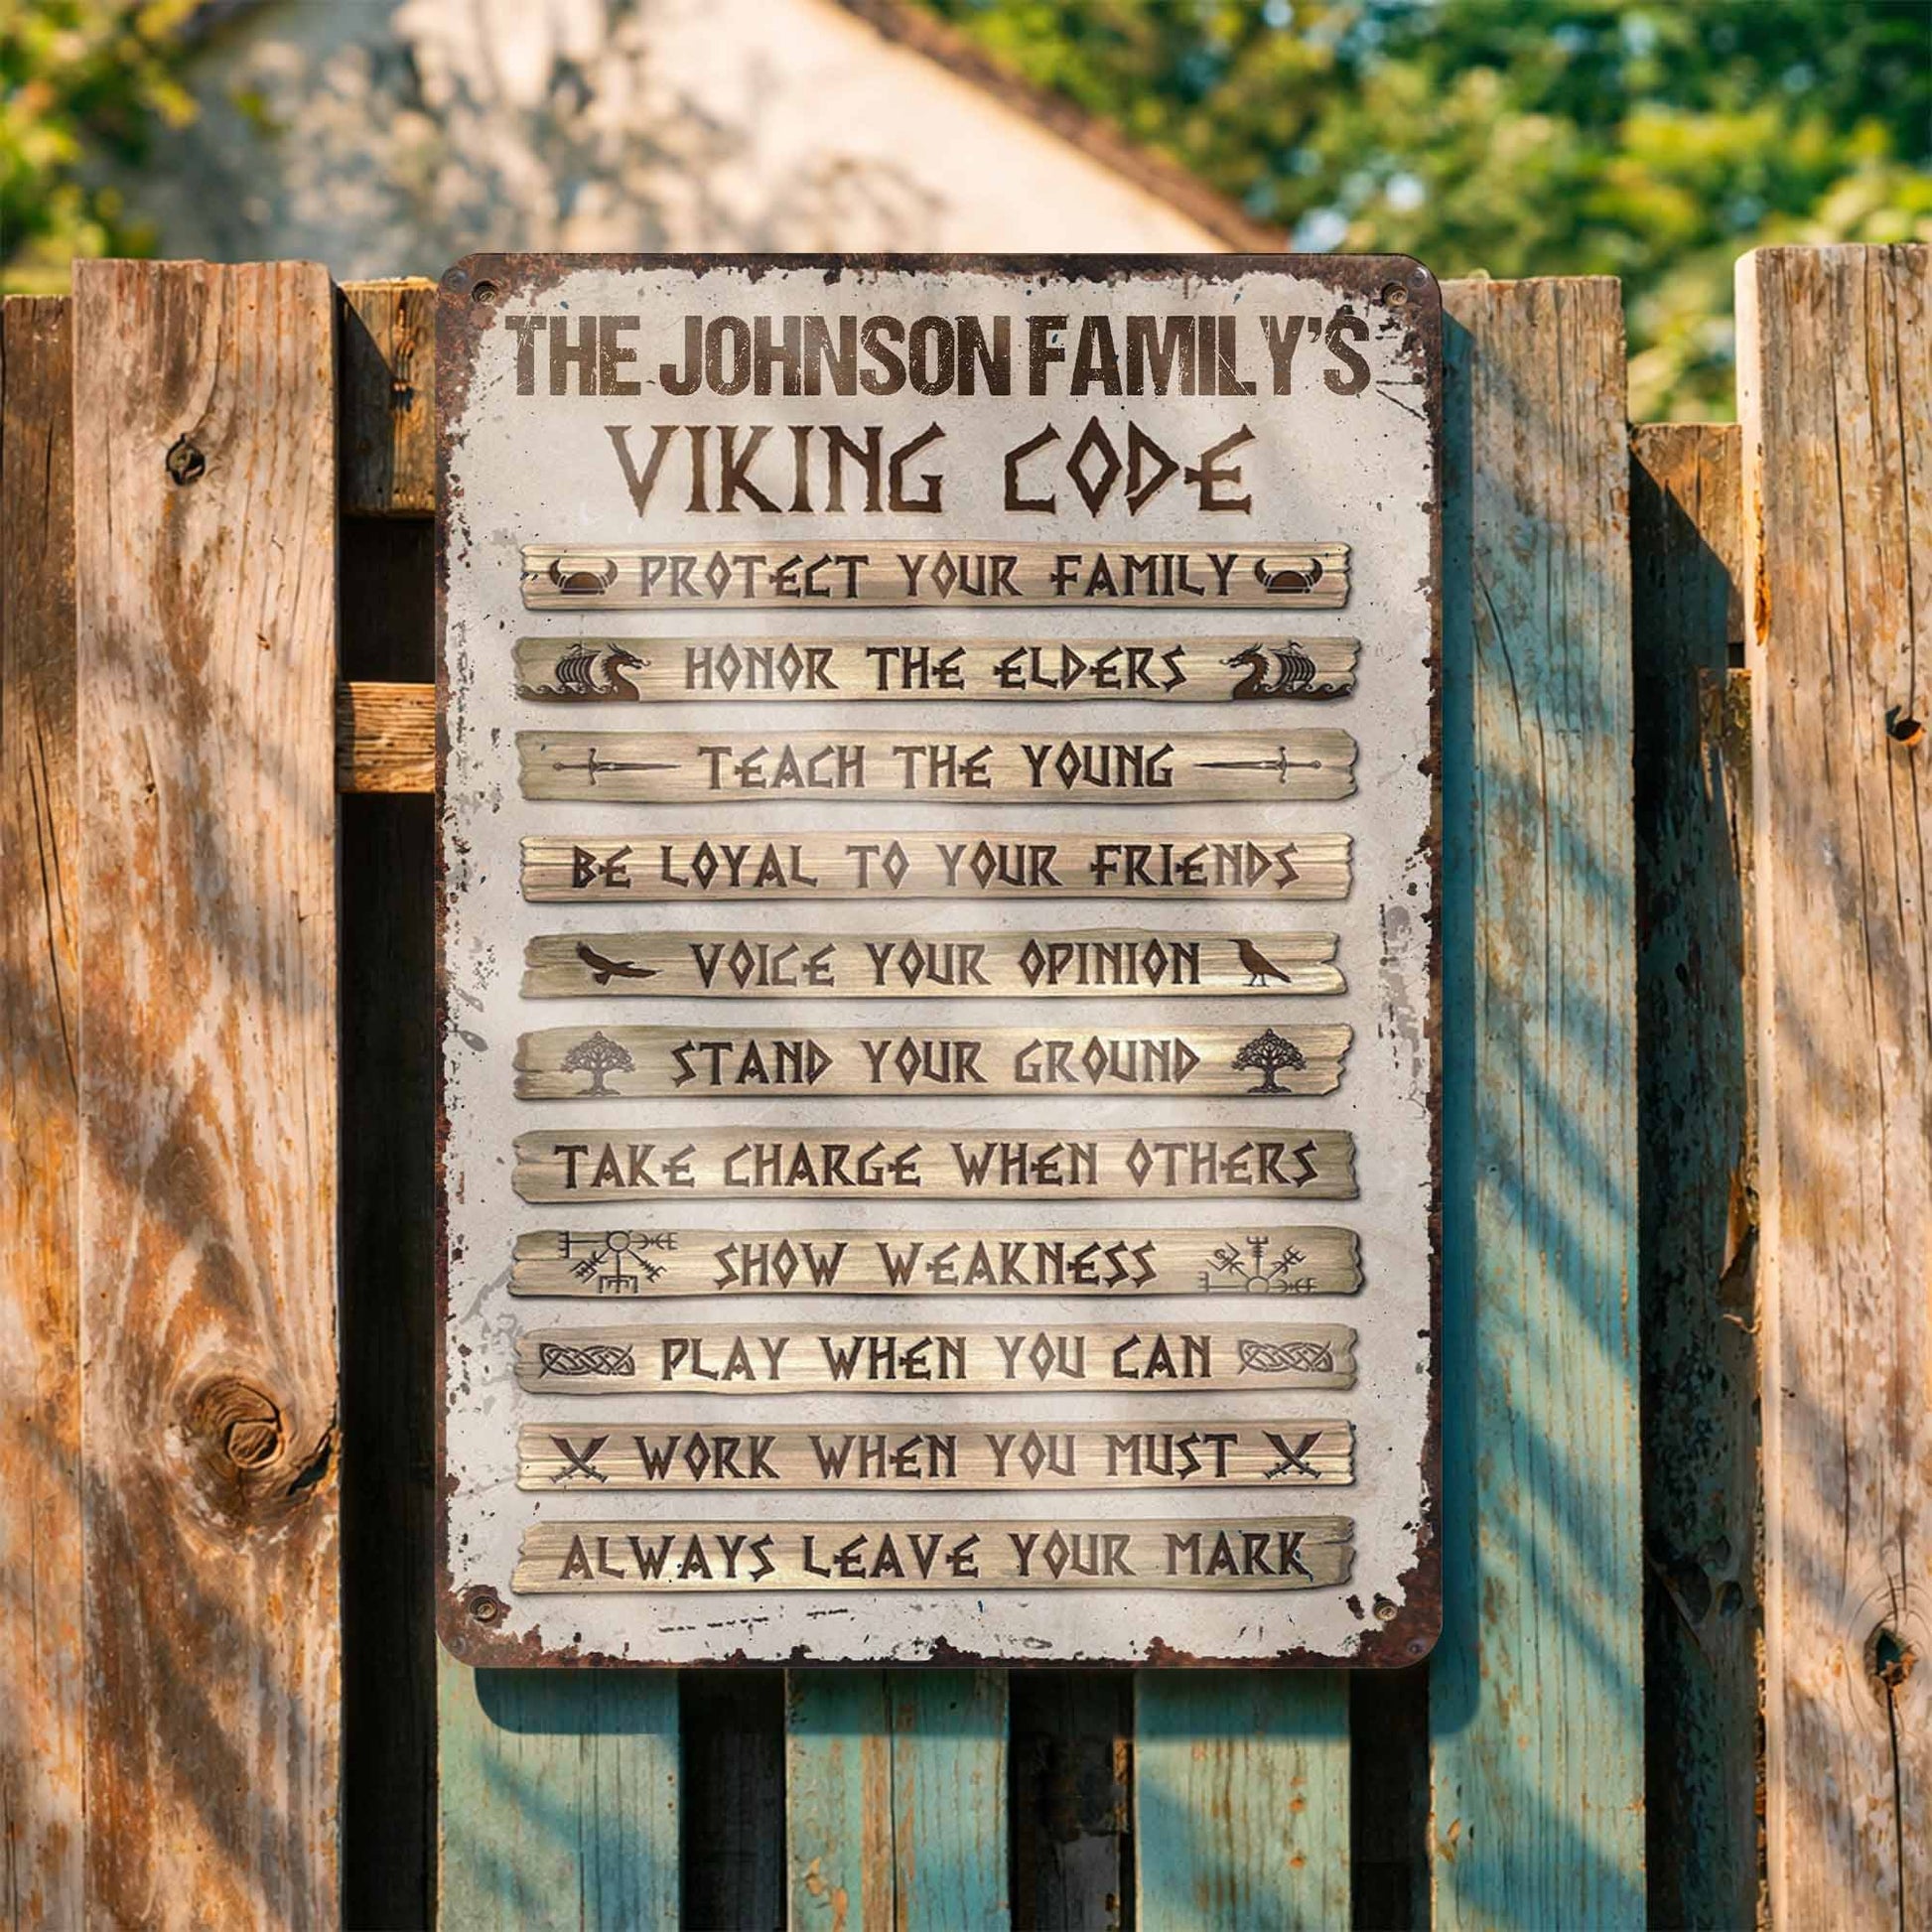 THE JOHNSON FAMILY'S
VIKING CODE
PROTECT YOUR FAMILY
HONOR THE ELDERS
TEACH THE YOUNG
BE LOYAL TO YOUR FRIENDS
VOICE YOUR OPINION
STAND YOUR GROUND
TAKE CHARGE WHEN OTHERS
SHOW WEAKNESS
PLAY WHEN YOU CAN
WORK WHEN YOU MUST
ALWAYS LEAVE YOUR MARK